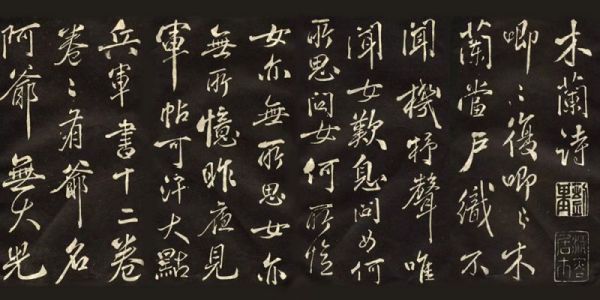 木蘭詩
唧〻復唧〻木
蘭當戶織不
聞機杼聲唯
聞女歎息問女何
所思問女何所憶
女亦無所思女亦
無所憶昨夜見
軍帖可汗大點
兵軍書十二卷
卷〻有爺名
阿爺無大兒